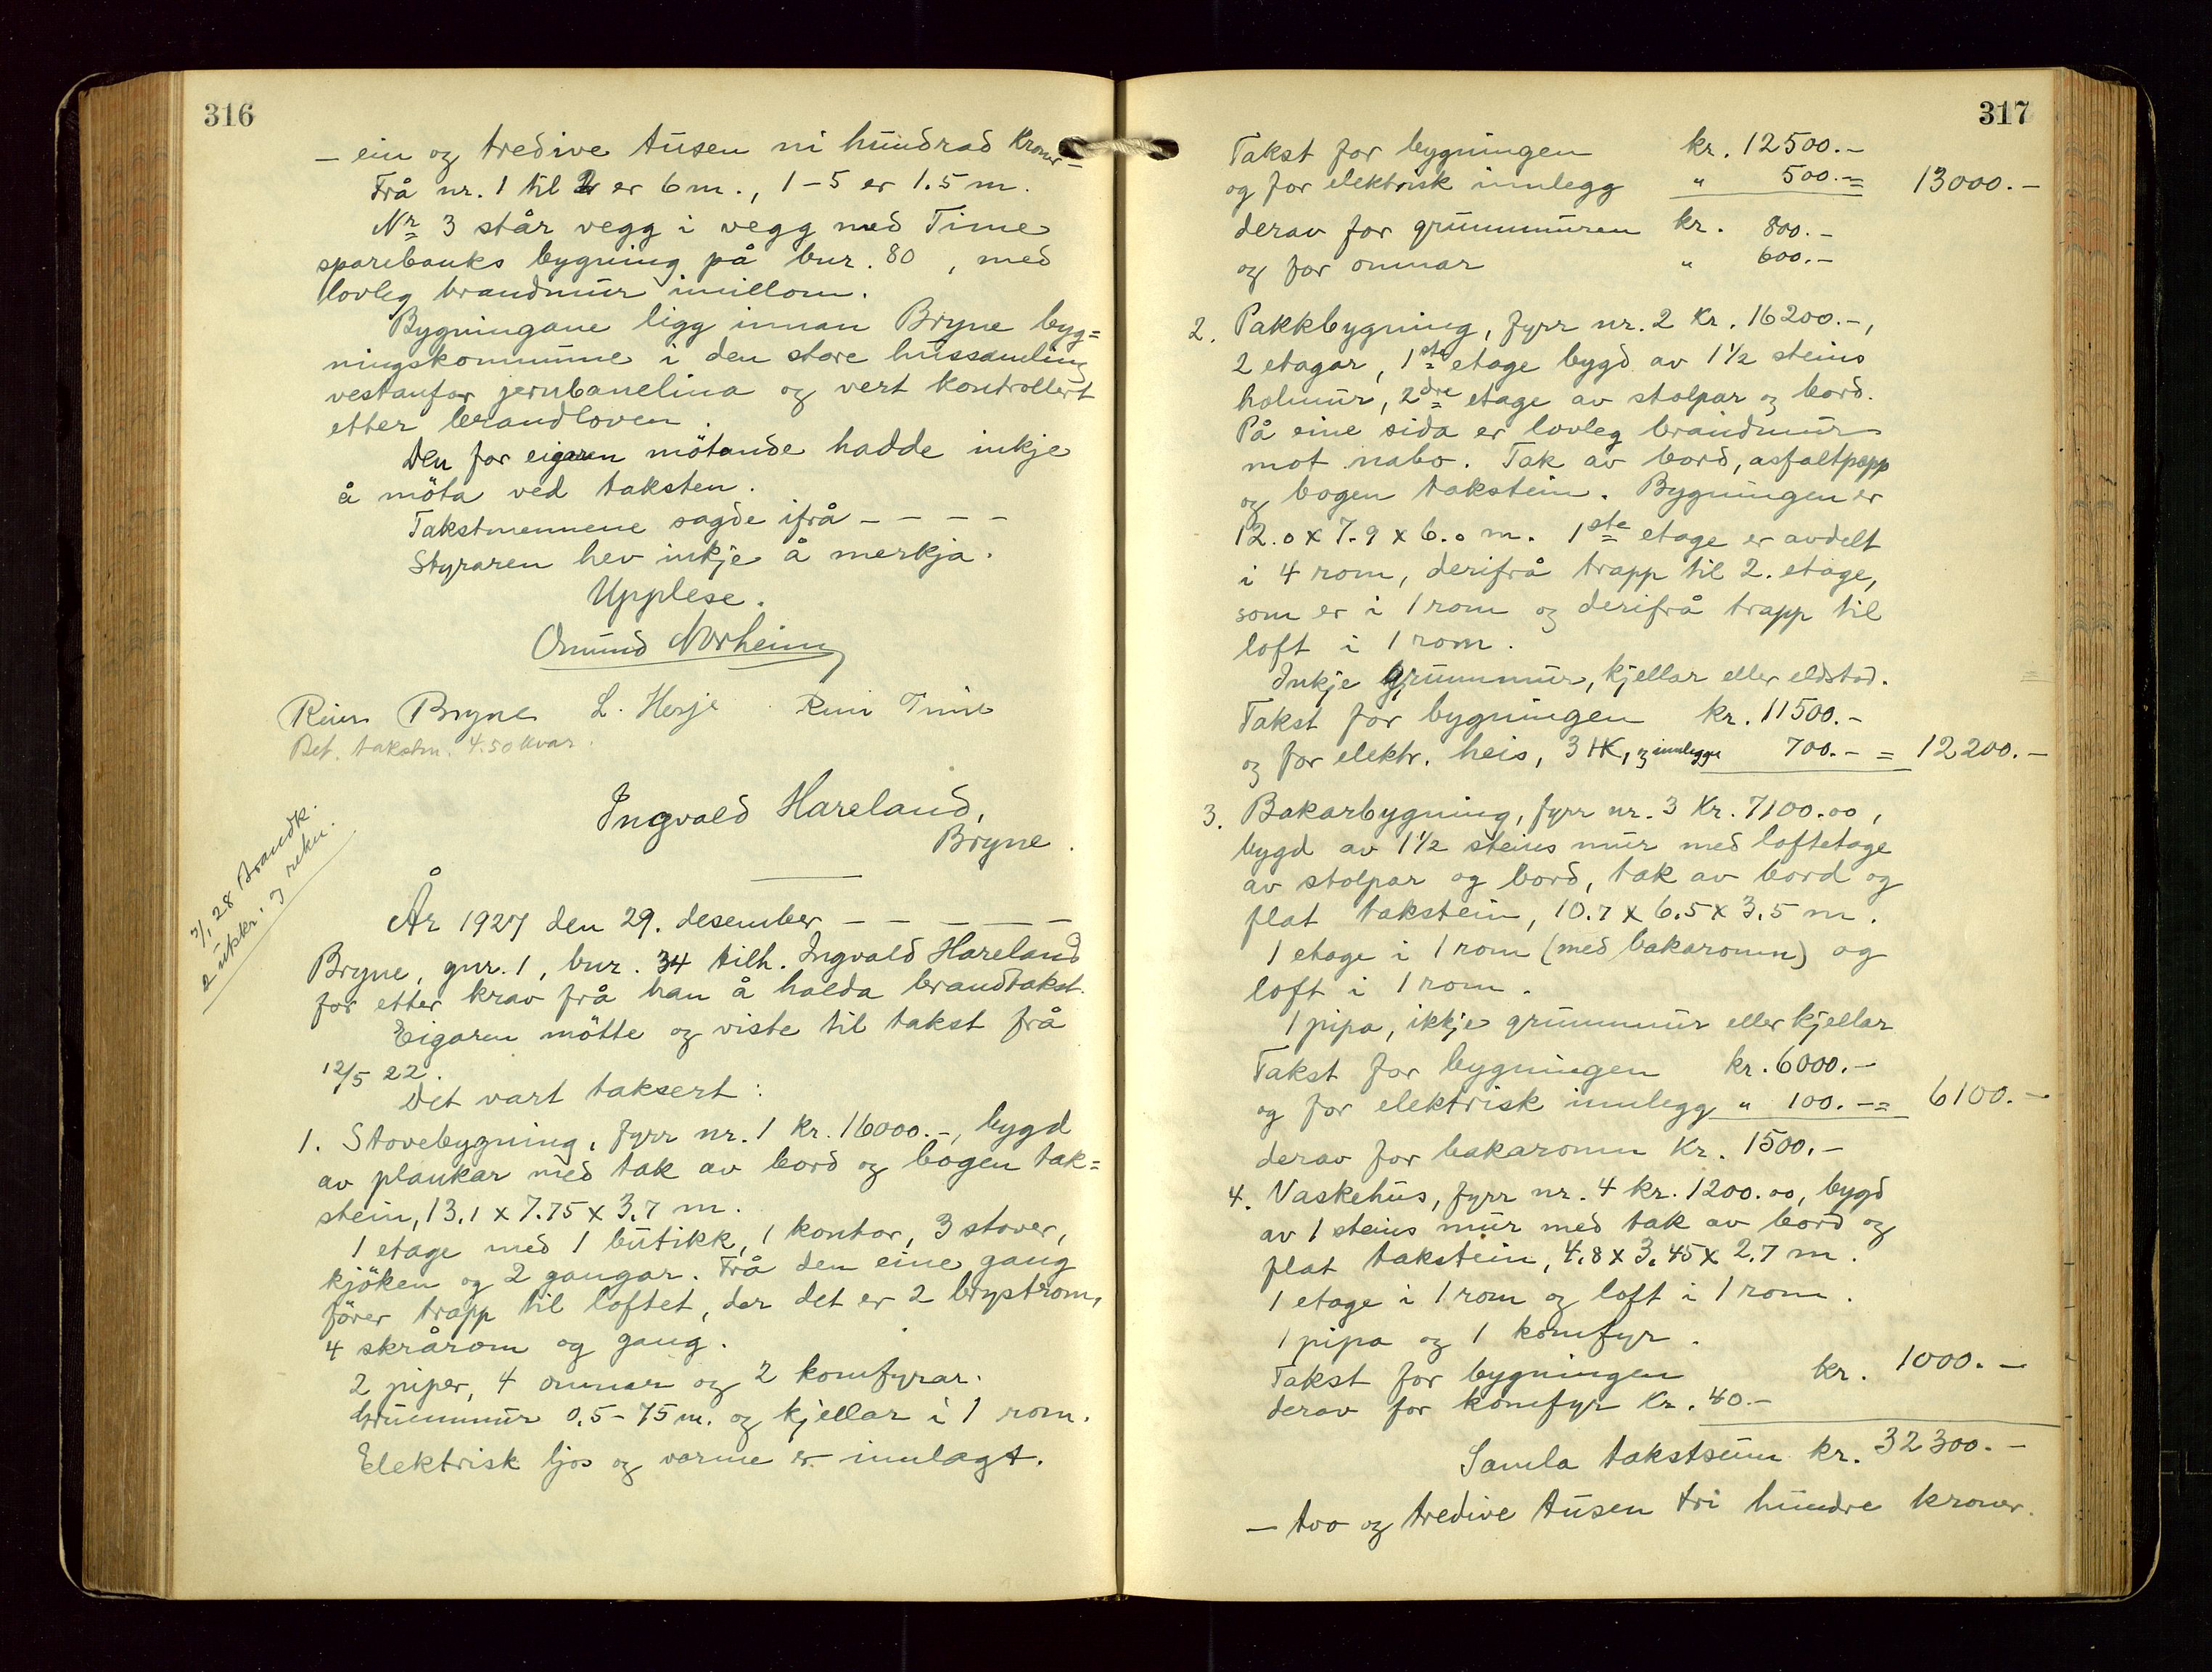 316
– ein og tredive tusen ni hundrad Kroner –
Frå nr. 1 til 2 er 6 m., 1 – 5 er 1.5 m.
Nr 3 står vegg i vegg med Time
sparebanks bygning på bnr. 80, med
lovleg brandmur imillom.
Bygningane ligg innan Bryne byg=
ningskommune i den store hussamling
vestanfor jernbanelina og vert kontrollert
etter brandloven.
Den for eigaren mötande hadde inkje
å möta ved taksten.
Takstmennene sagde ifrå – – – –
Styraren hev inkje å merkja.
Upplese.
Omund Norheim
Reier Bryne L. Herje Reni Time
Bet. takstm. 4.50 kvar.
Ingvald Hareland,
Bryne.
3/1 28 brandk.
2 utskr. og rekn.
År 1927 den 29. desember – – – – –
Bryne, gnr. 1, bnr. 34 tilh. Ingvald Hareland
for etter krav frå han å halda brandtakst.
Eigaren mötte og viste til takst frå
12/5 22.
Det vart taksert:
1. Stovebygning, fyrr nr. 1 kr. 16000.–, bygd
av plankar med tak av bord og bogen tak=
stein, 13.1 x 7.75 x 3.7 m.
1 etage med 1 butikk, 1 kontor, 3 stover,
kjöken og 2 gangar. Frå den eine gang
förer trapp til loftet, der det er 2 brystrom,
4 skrårom og gang.
2 piper, 4 omnar og 2 komfyrar.
Grunnmur 0.5 – 75 m. og kjellar i 1 rom.
Elektrisk ljos og varme er innlagt.
317
Takst for bygningen kr. 12500.–
og for elektrisk innlegg " 500.– = 13000.–
derav for grunnmuren kr. 800.–
og for omnar " 600.–
2. Pakkbygning, fyrr nr. 2 Kr. 16200.–,
2 etagar, 1ste etage bygd av 1½ steins
holmur, 2dre etage av stolpar og bord.
På eine sida er lovleg brandmur
mot nabo. Tak av bord, asfaltpapp
og bogen takstein. Bygningen er
12.0 x 7.9 x 6.0 m. 1ste etage er avdelt
i 4 rom, derifrå trapp til 2. etage,
som er i 1 rom og derifrå trapp til
loft i 1 rom.
Inkje grunnmur, kjellar eller eldstad.
Takst for bygningen kr. 11500.–
og for elektr. heis, 3 HK, og innlegg 700.– = 12200.–
3. Bakarbygning, fyrr nr. 3 Kr. 7100.00,
bygd av 1½ steins mur med loftetage
av stolpar og bord, tak av bord og
flat takstein, 10.7 x 6.5 x 3.5 m.
1 etage i 1 rom (med bakaromn) og
loft i 1 rom.
1 pipa, ikkje grunnmur eller kjellar
Takst for bygningen kr. 6000.–
og for elektrisk innlegg " 100.– = 6100.–
derav for bakaromn Kr. 1500.–
4. Vaskehus, fyrr nr. 4 kr. 1200.00, bygd
av 1 steins mur med tak av bord og
flat takstein, 4.8 x 3.45 x 2.7 m.
1 etage i 1 rom og loft i 1 rom.
1 pipa og 1 komfyr.
Takst for bygningen kr. 1000.–
derav for komfyr Kr. 40.–
Samla takstsum kr. 32300.–
– tvo og tredive tusen tri hundre kroner.